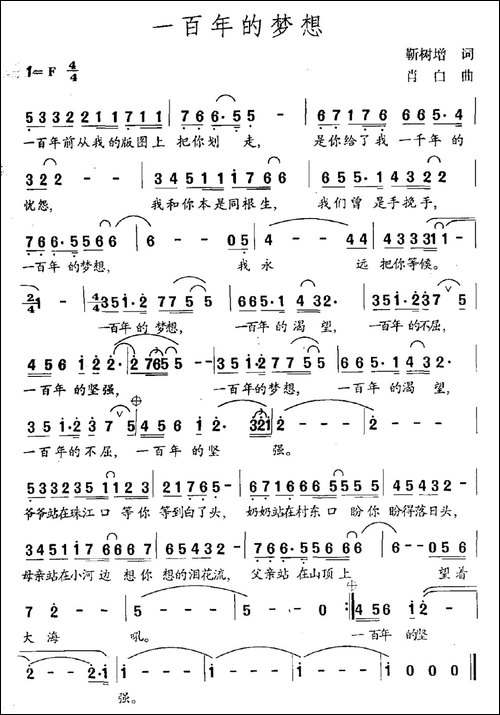 一百年的梦想
靳树增 词
1= F 4/4
肖白 曲
5 3 3 2 2 1 1 1 7 1 1 | 7 6 6· 5 5 - | 6 7 1 7 6 6 6 5· 4
一百年前从我的版图上 把你划 走， 是你给了我 一千年的
3 2 2 - - | 3 4 5 1 1 1 1 7 6 6 | 3 4 5 4 3 3 3 -
忧怨， 我和你本是同根生， 我们曾 是手挽手，
7 6 6· 5 5 6 6 | 6 - - 0 5 | 4 - - 4 4 | 4 3 3 3 1 1 - -
一百年 的梦想， 我 永 远 把你等候。
2/4 1 - | 4/4 3 5 1· 2 7 7 5 5 | 6 6 5· 1 4 3 2· | 3 5 1· 2 3 7 5
一百年 的 梦想， 一百年 的 渴 望， 一百年 的不屈，
4 5 6 1 2 2· | 2 7 6 5 5 - - | 3 5 1· 2 1 7 7 5 5 | 6 6 5· 1 4 3 2·
一百年 的坚强， 一百年的梦想， 一百年 的渴望，
3 5 1· 2 3 7 5 | 4 5 6 1 2 - | 2 · 3 2 1 | 2 - - - | 2 - - -
一百年 的不屈， 一百年 的坚 强。
5 3 3 2 3 5 1 1 2 3 | 2 1 7 6 5 1 - | 6 7 1 6 6 6 5 5 5 | 4 5 4 3 2 -
爷爷站在珠江口 等你 等到白了头， 奶奶站在村东口 盼你 盼得落日头，
3 4 5 1 1 7 6 6 6 7 | 6 5 4 3 2 - | 7 6 6· 5 5 5 6 6 | 6 - 0 5 6
母亲站在小河边 想你 想的泪花流， 父亲站 在山顶上 望着
7 2 - - | 5 - - - | 5 - - 0 :‖ 4 5 6 1 2 -
大 海 吼。 一百年 的坚
2 - - 2·1 | 1 - - - | 1 - - - | 1 - - - | 1 0 0 0 ‖
强。